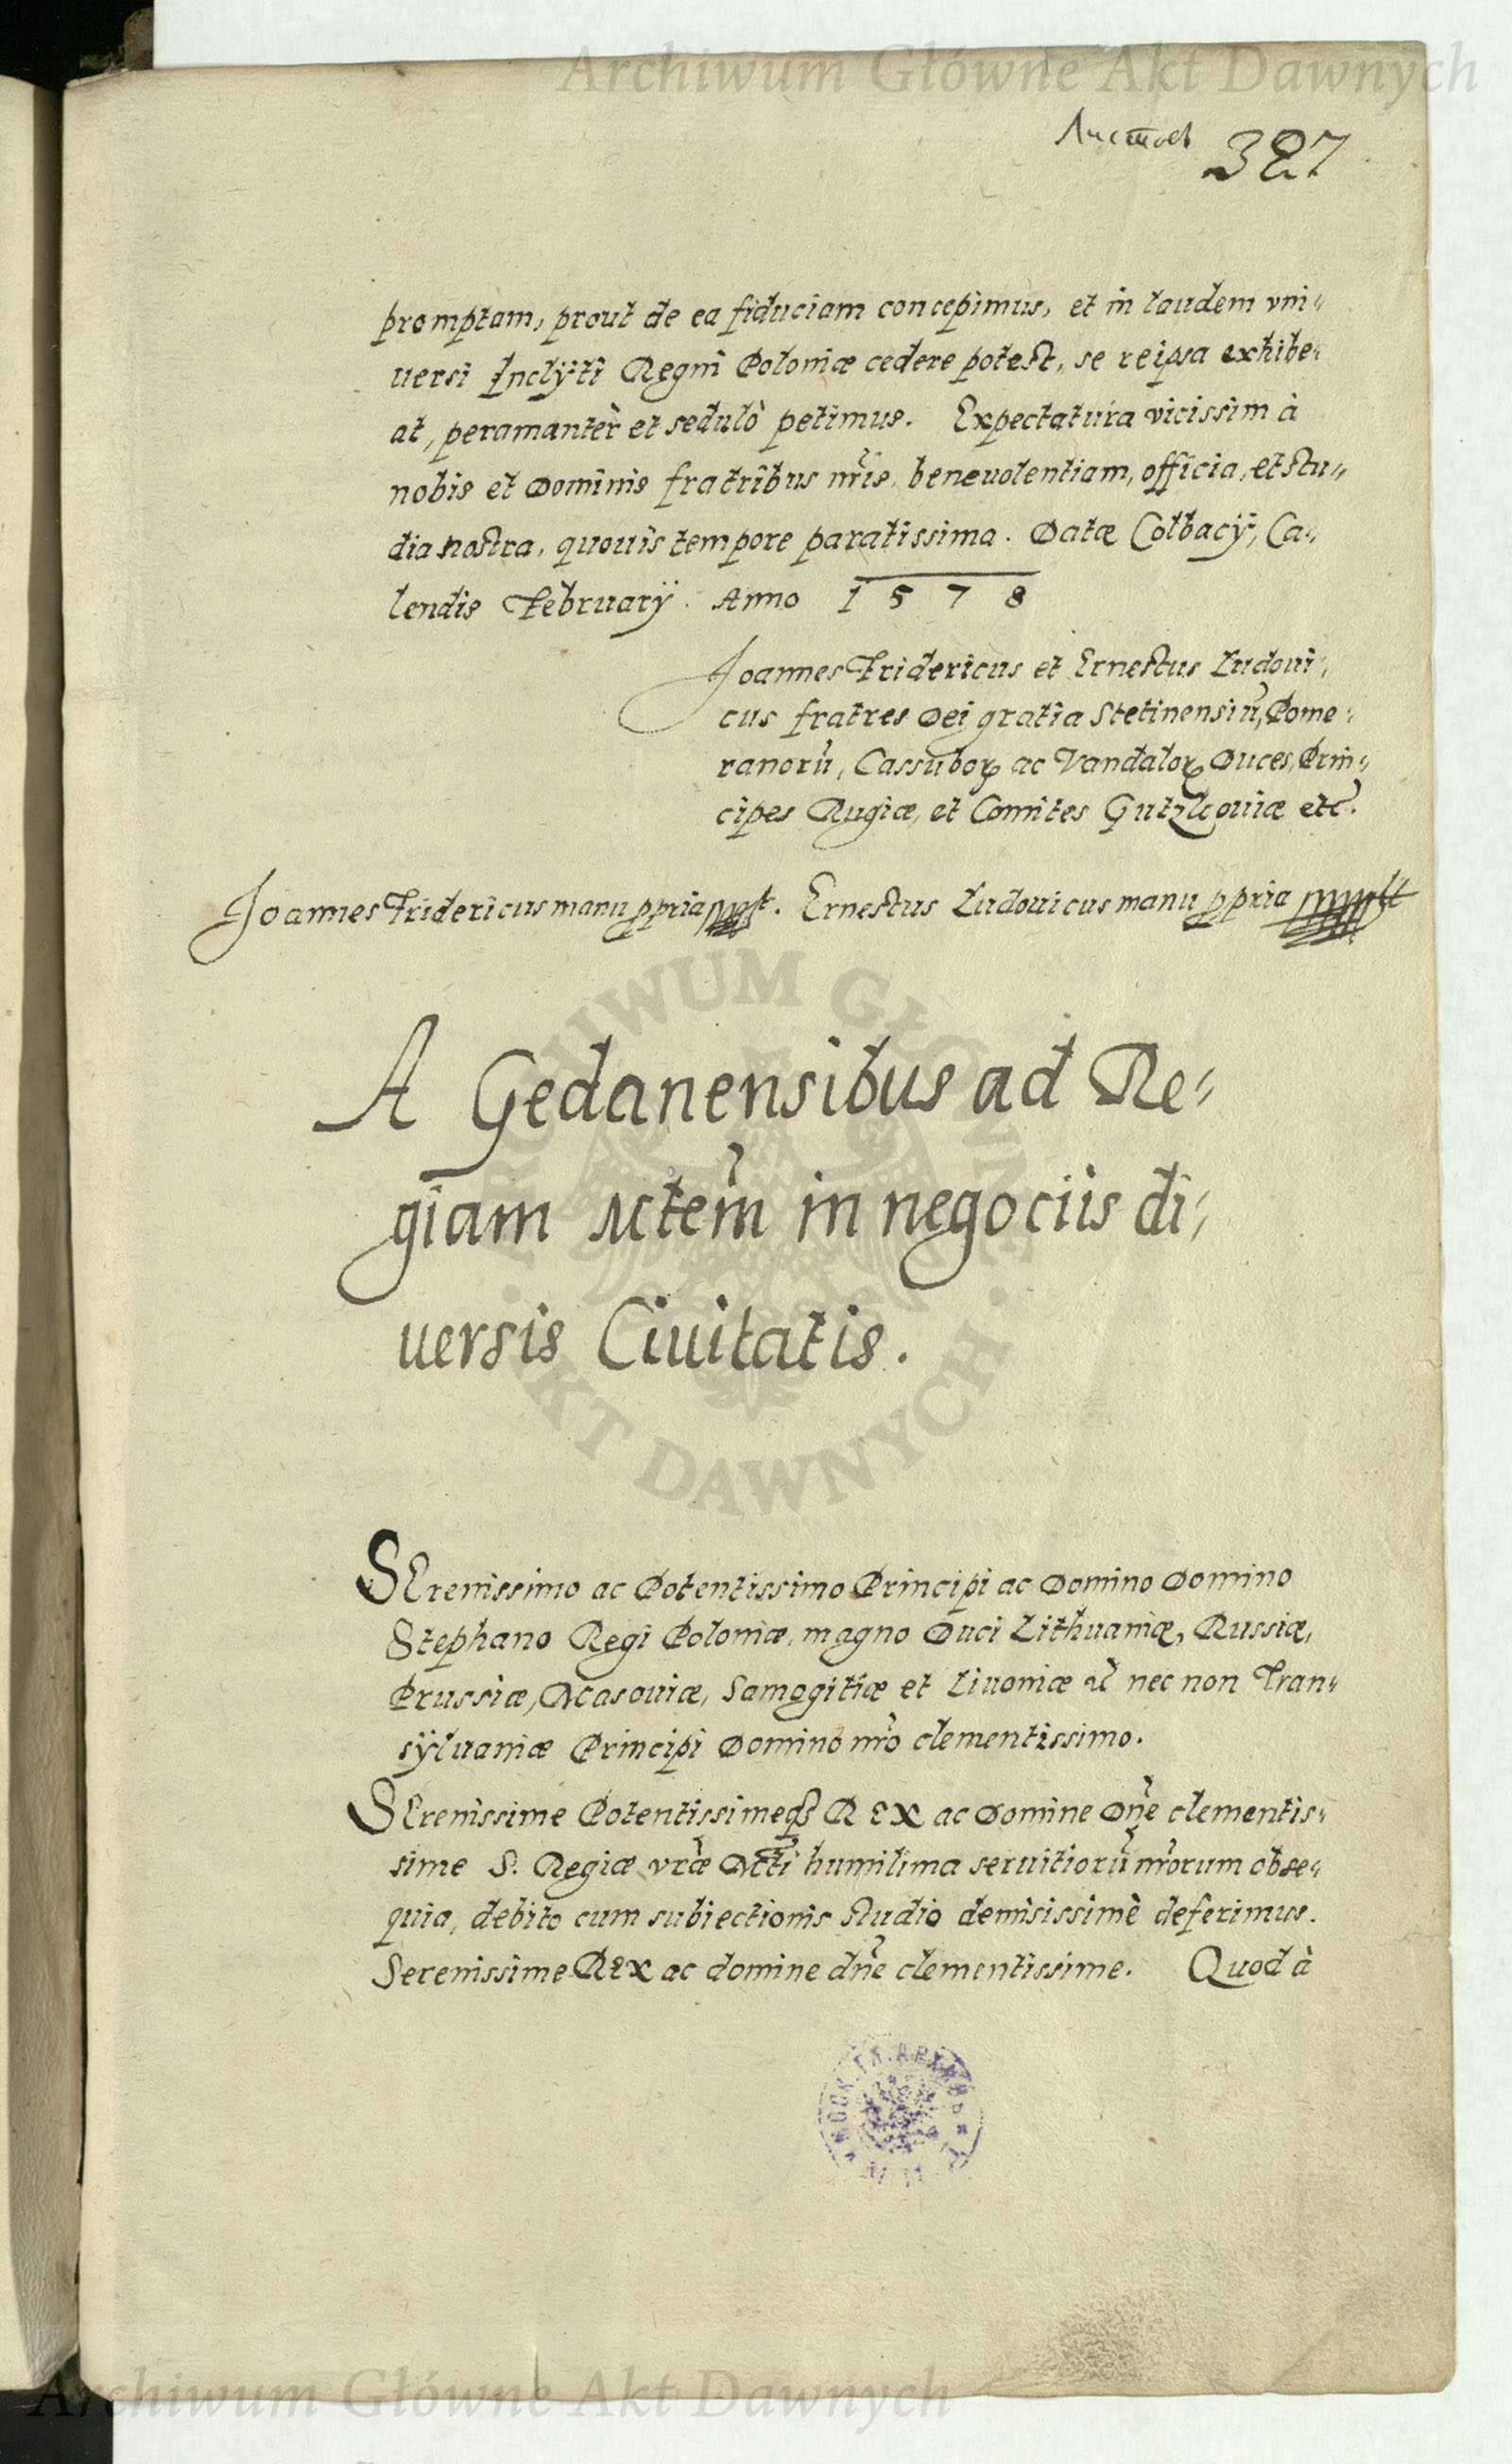 Archiwum Główne Akt Dawnych
Листов 327
promptam, prout de ea fiduciam concepimus, et in laudem vni„
uersi Inclÿti Regni Poloniæ cedere potest, se reipsa exhibe„
at, peramantèr et sedulò petimus. Expectatura vicissim à
nobis et Dominis fratribus nr̃is, beneuolentiam, officia, et stu„
dia nostra, quouis tempore paratissima. Datæ Colbacÿ, Ca„
lendis Februarÿ. Anno 1578
Joannes Fridericus et Ernestus Ludoui„
cus fratres Dei gratia Stetinensiũ, Pome„
ranorũ, Cassuboꝝ ac Vandaloꝝ Duces, Prin„
cipes Rugiæ, et Comites Gutzkouiæ etc̃.
Joannes Fridericus manu ꝓpria mpst. Ernestus Ludouicus manu ꝓpria
A Gedanensibus ad Re„
giam Mtem̃ in negociis di„
uersis Ciuitatis.
SErenissimo ac Potentissimo Principi ac Domino Domino
Stephano Regi Poloniæ, magno Duci Lithuaniæ, Russiæ,
Prussiæ, Masouiæ, Samogitiæ et Liuoniæ nec non Tran„
sÿluaniæ Principi Domino nr̃o clementissimo.
SErenissime Potentissimeqꝫ REX ac Domine Dñe clementis„
sime S. Regiæ vr̃æ Mtĩ humilima seruitiorũ nr̃orum obse„
quia, debito cum subiectionis studio demisissimè deferimus.
Serenissime REX ac domine dñe clementissime. Quod à
ARCHIWUM GŁÓWNE AKT DAWNYCH
Archiwum Główne Akt Dawnych